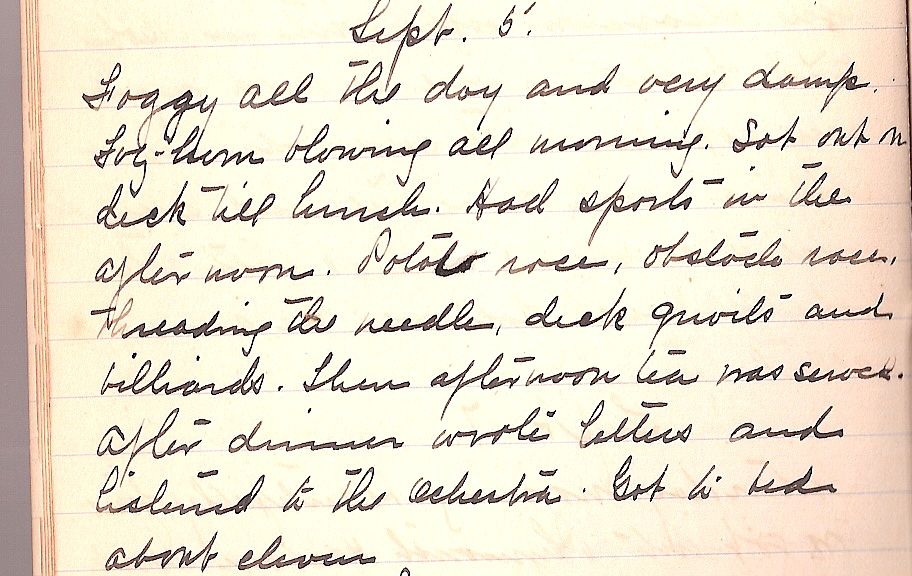 Sept. 5.
Foggy all the day and very damp.
Fog-horn blowing all morning. Sat out on
deck till lunch. Had sports in the
afternoon. Potato race, obstacle race,
threading the needle, deck quoits and
billiards. Then afternoon tea was served.
After dinner wrote letters and
listened to the Ochestra. Got to bed
about eleven